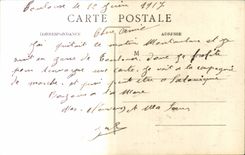 Toulouse le 12 Juin 1917
CARTE POSTALE
CORRESPONDANCE
ADRESSE
Chère Amie
J'ai quitté ce matin Montauban et je
suis en gare de Toulouse dont je profite
pour envoyer une carte. Je vais à la compagnie
de marche, et puis peut être à Salonique
Bonjour à la Mère